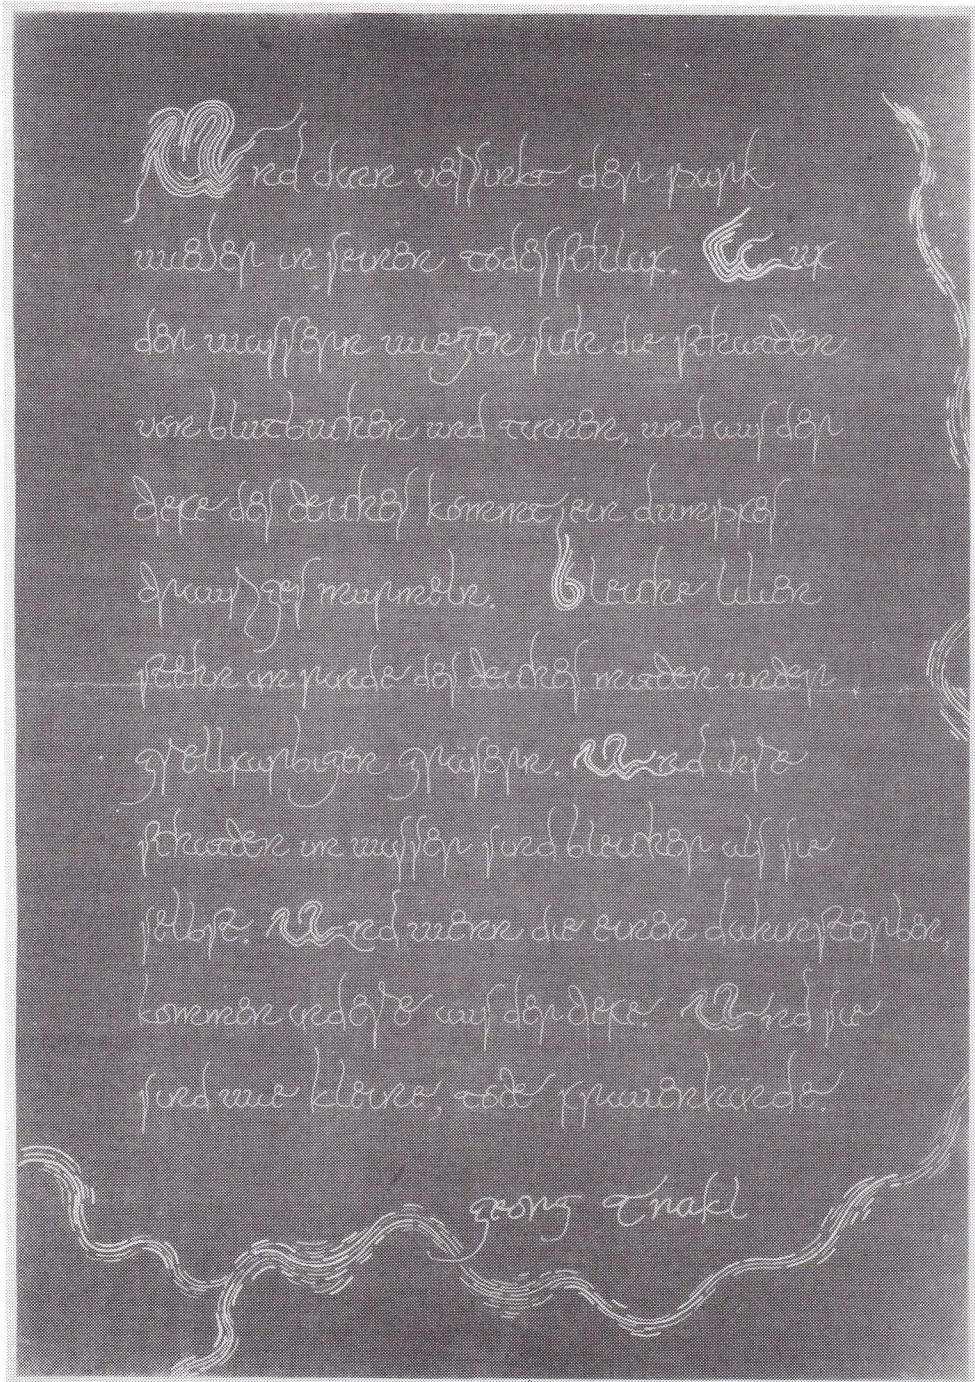 Und dann versinkt der park
wieder in seinen todesschlaf. Auf
den wassern wiegen sich die schatten
von blutbuchen und tannen, und aus der
tiefe des teiches kommt ein dumpfes,
trauriges murmeln. Bleiche lilien
stehn am rande des teiches mitten unter
grellfarbigen gräsern. Und ihre
schatten im wasser sind bleicher als sie
selbst. Und wenn die einen dahinsterben,
kommen andere aus der tiefe. Und sie
sind wie kleine, tote frauenhände.
georg Trakl